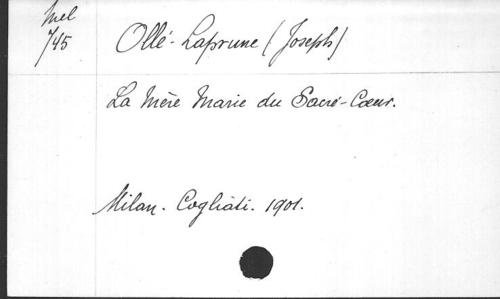 Mel
745
Ollé-Laprune (Joseph)
La Mère Marie du Sacré-Cœur.
Milan. Cogliati. 1901.